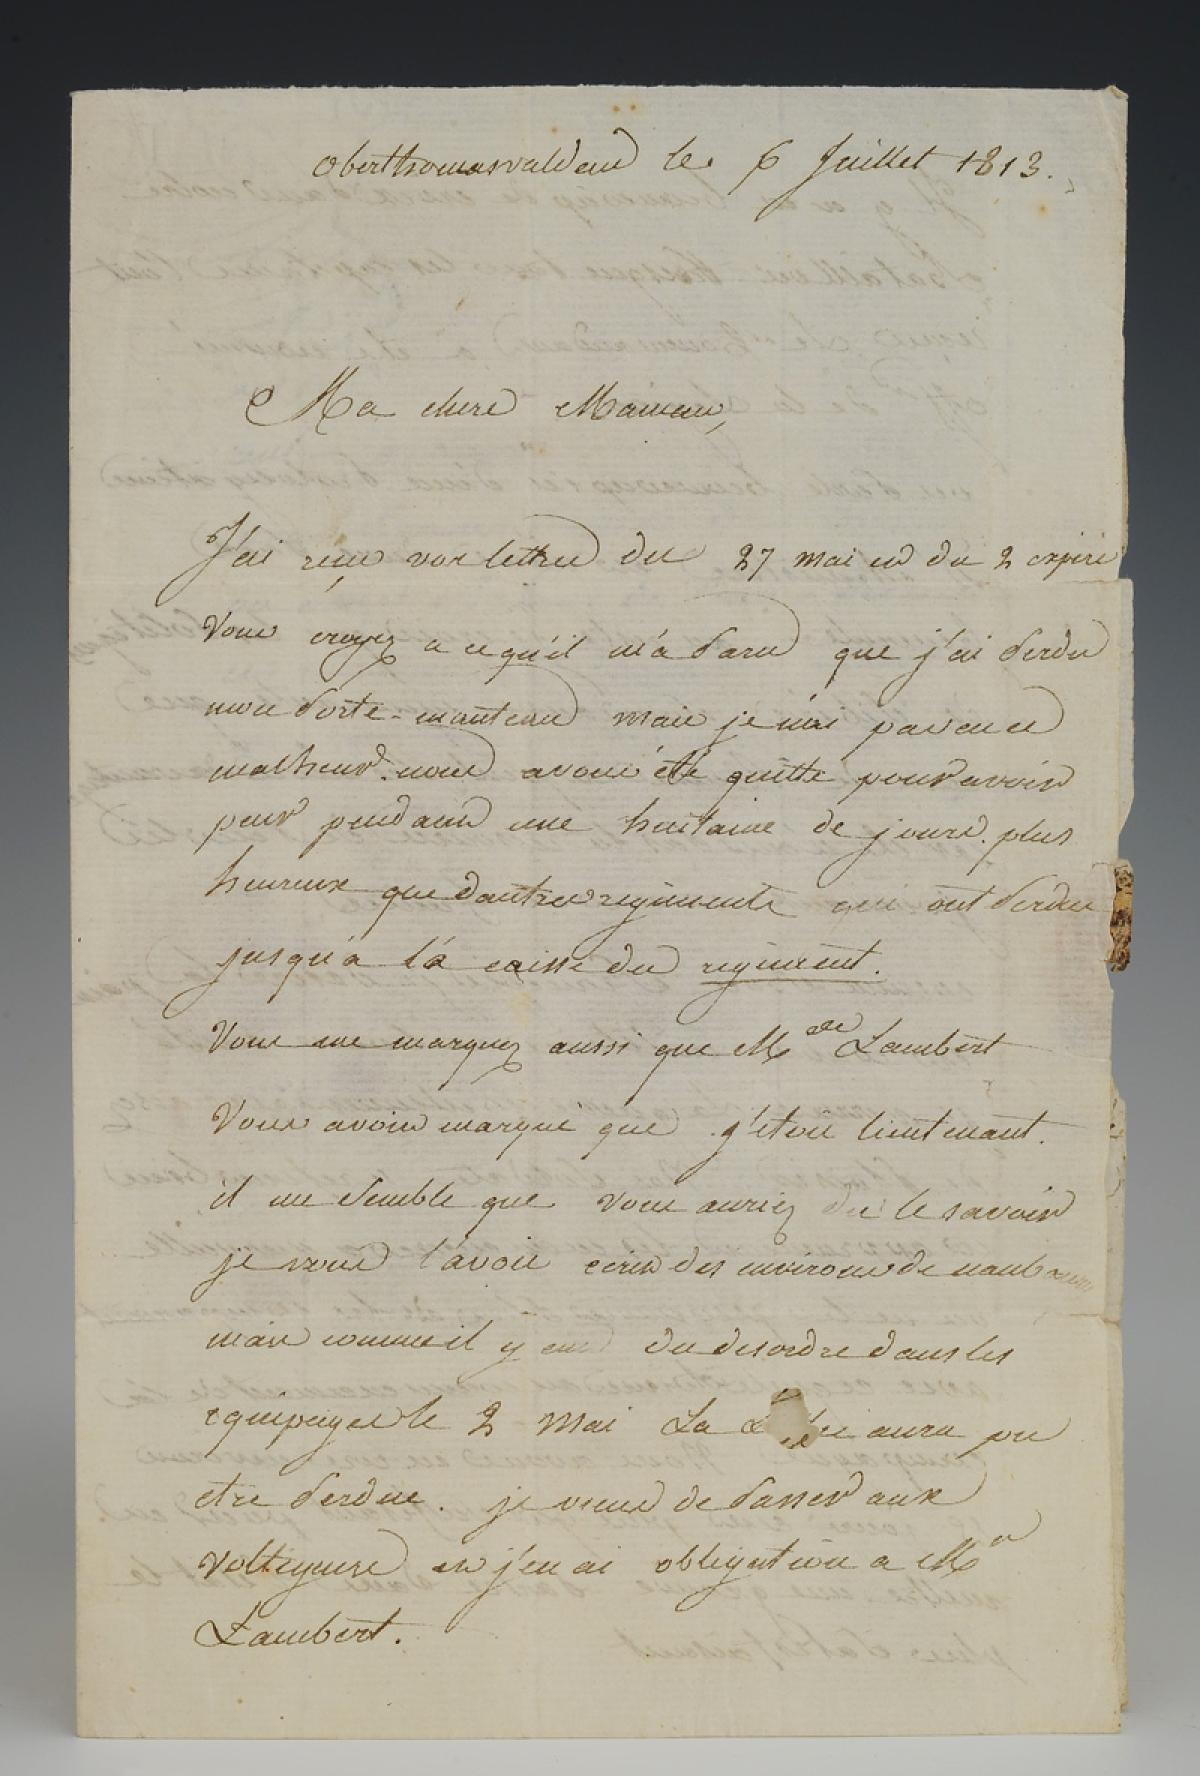 Oberthomasvaldau le 6 Juillet 1813.
Ma chere Maman,
J'ai reçu vos lettres du 27 mai et du 2 expiré
Vous croyez a ce qu'il m'a paru que j'ai perdu
mon porte-manteau mais je n'ai pas eu ce
malheur. nous avons été quitte pour avoir
peur pendant une huitaine de jours. plus
heureux que dautres regiments qui ont perdu
jusqu'a la caisse du regiment.
Vous me marquez aussi que Mde Lambert
Vous avoit marqué que j'etois lieutenant.
il me semble que vous auriez du le savoir
je vous l'avois ecrit des environs de
mais comme il y eut du desordre dans les
equipages le 2 mai La aura pu
etre perdue. je viens de passer aux
voltigeurs et j'en ai obligation a Mr
Lambert.